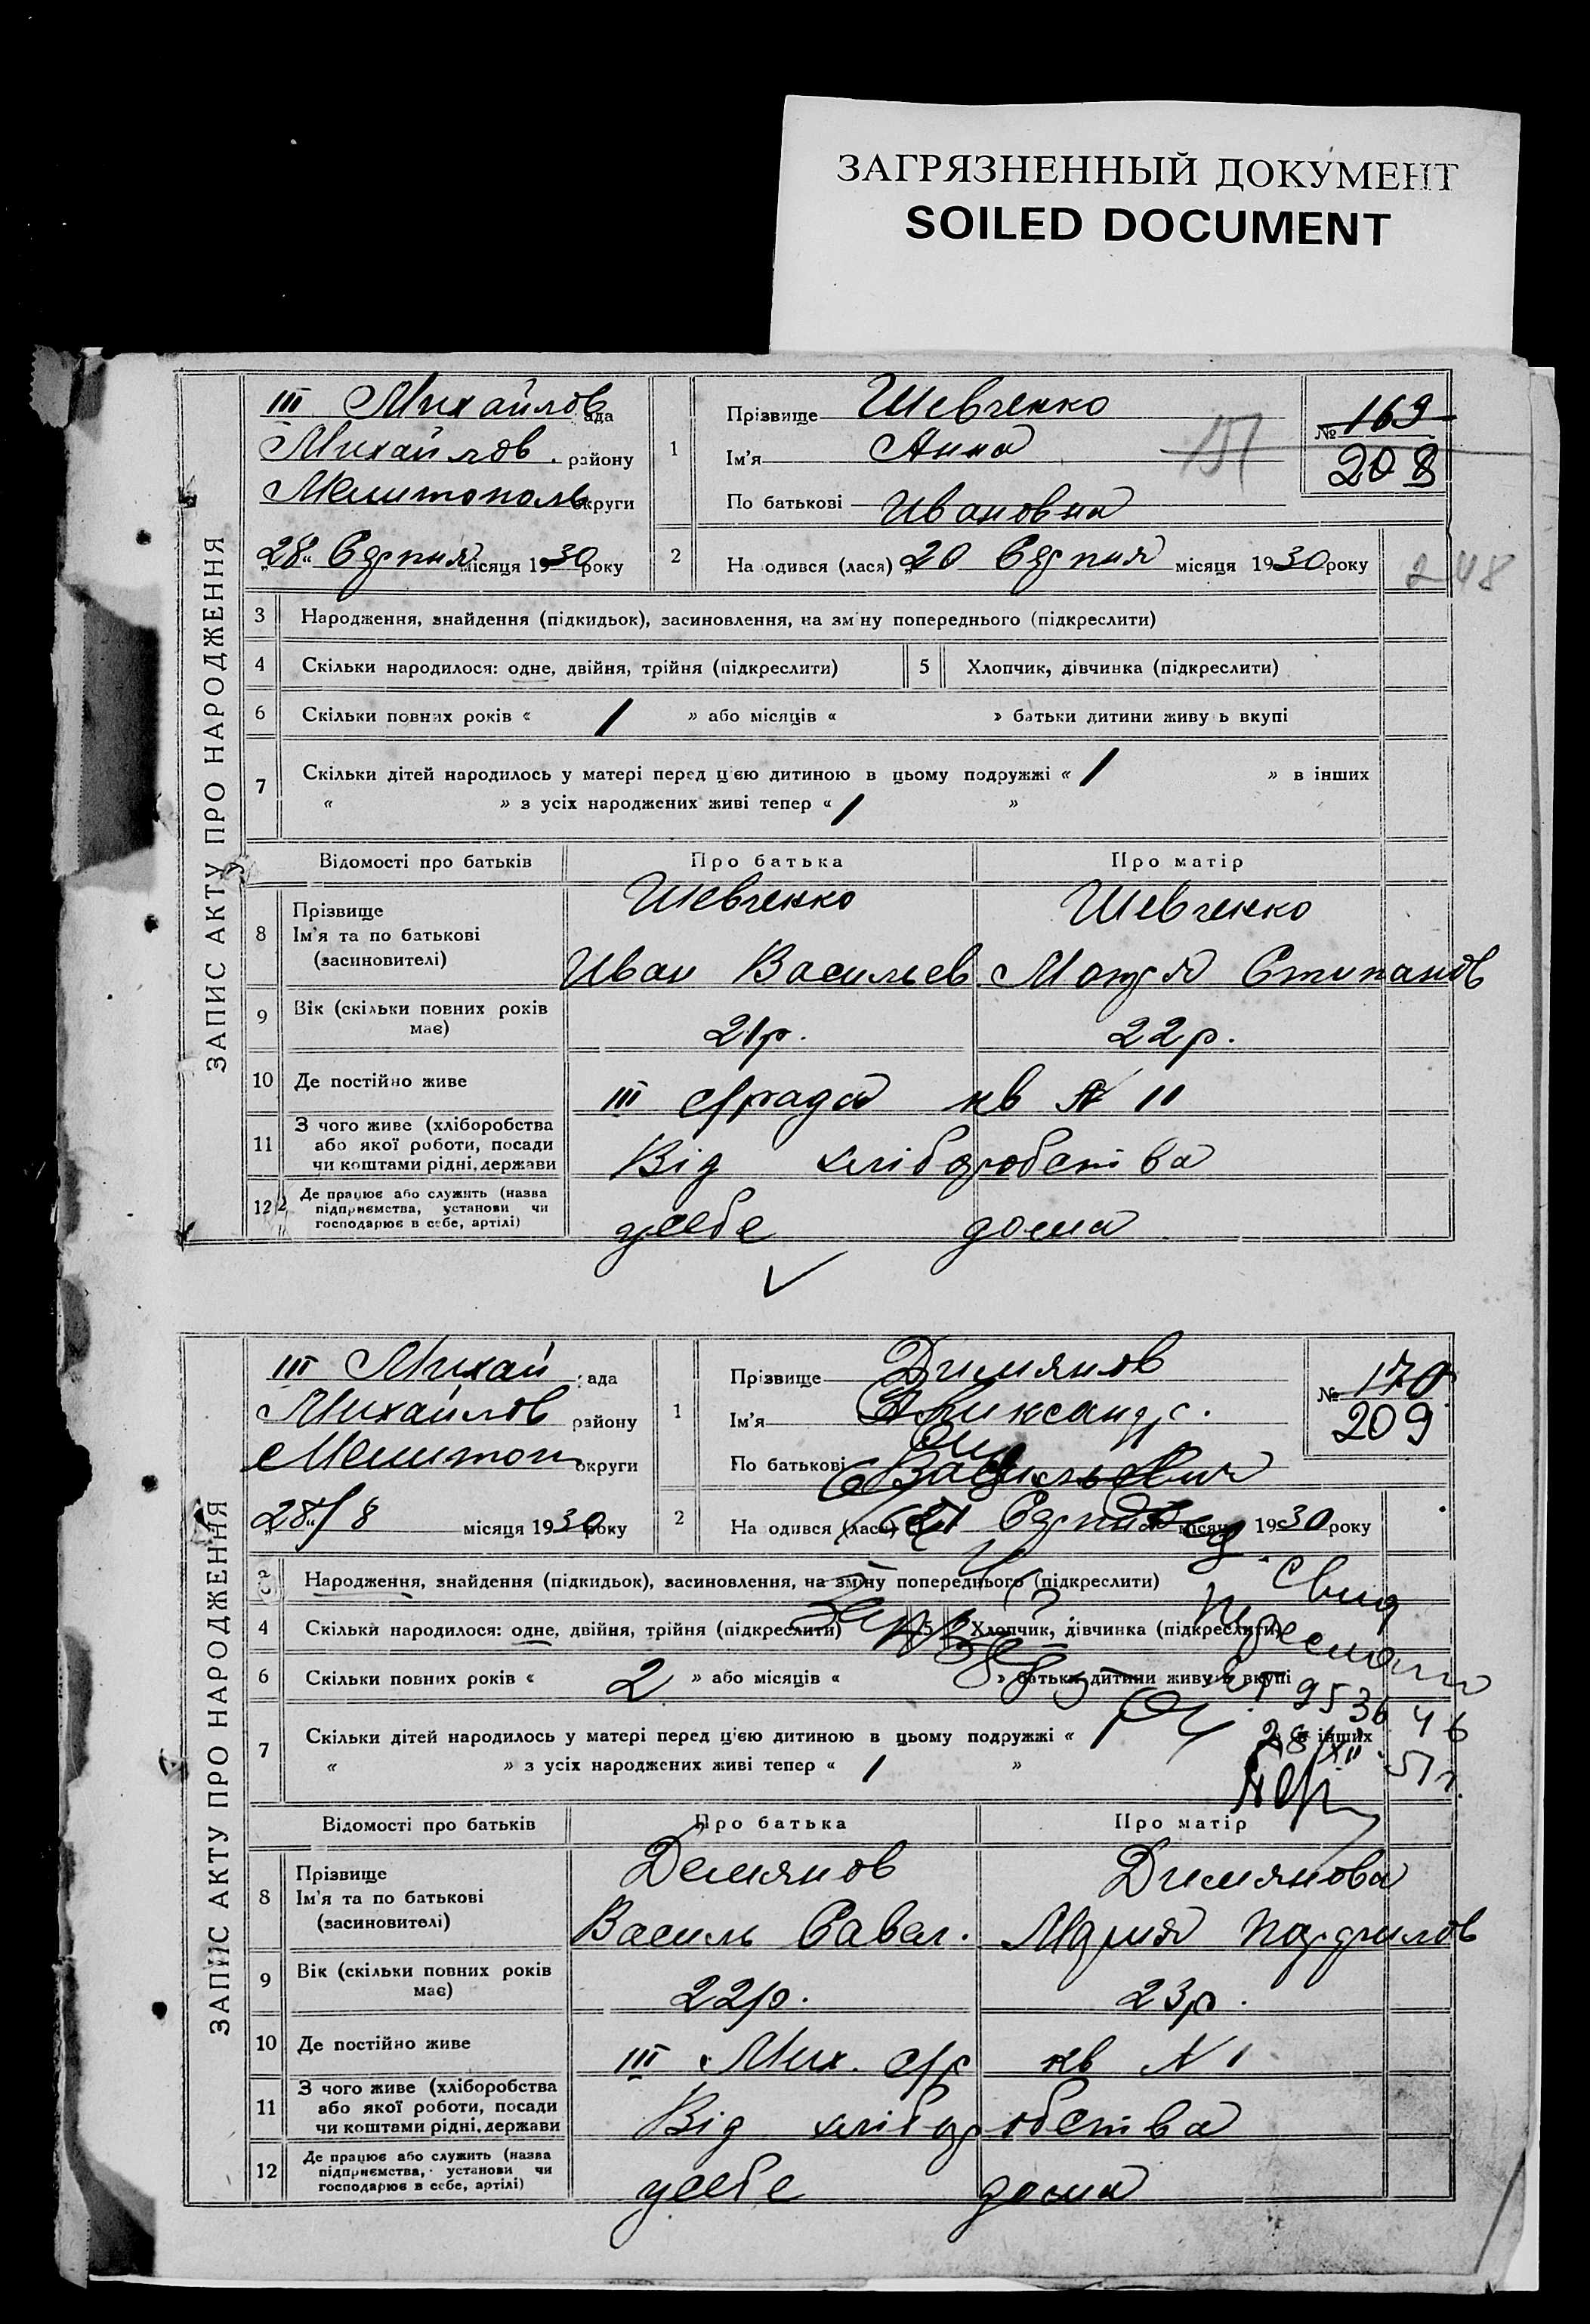 ЗАГРЯЗНЕННЫЙ ДОКУМЕНТ
SOILED DOCUMENT
ЗАПИС АКТУ ПРО НАРОДЖЕННЯ
III Михайлов ада
Михайлов. району
Мелитополь округи
„28“ Серпня місяця 1930 року
1
Прізвище Шевченко
Ім'я Анна
По батькові Ивановна
№ 169
208
2 На одився (лася) „20 Серпня місяця 1930 року
248
3 Народження, знайдення (підкидьок), засиновлення, на зм ну попереднього (підкреслити)
4 Скільки народилося: одне, двійня, трійня (підкреслити) 5 Хлопчик, дівчинка (підкреслити)
6 Скільки повних років « 1 » або місяців « » батьки дитини живу ь вкупі
7 Скільки дітей народилось у матері перед цією дитиною в цьому подружжі « 1 » в інших
« » з усіх народжених живі тепер « 1 »
Відомості про батьків Про батька Про матір
8 Прізвище Шевченко Шевченко
Ім'я та по батькові
(засиновителі) Иван Васильев. Мотря Степанов
9 Вік (скільки повних років має) 21р. 22р.
10 Де постійно живе III с/рада кв № 11
11 З чого живе (хліборобства
або якої роботи, посади
чи коштами рідні, держави Від хліборобства
12 Де працює або служить (назва
підприємства, установи чи
господарює в себе, артілі) усебе дома
ЗАПИС АКТУ ПРО НАРОДЖЕННЯ
III Михай ада
Михайлов району
Мелитоп округи
„28“/8 місяця 1930 року
1
Прізвище Димянов
Ім'я Александр.
По батькові Васильевич
№ 170
209
2 На одився (лася) 21 Серпня місяця 1930 року
3 Народження, знайдення (підкидьок), засиновлення, на зміну попереднього (підкреслити)
4 Скільки народилося: одне, двійня, трійня (підкреслити) 5 Хлопчик, дівчинка (підкреслити)
6 Скільки повних років « 2 » або місяців « » батьки дитини живу ь вкупі
7 Скільки дітей народилось у матері перед цією дитиною в цьому подружжі « 1 » в інших
« » з усіх народжених живі тепер « 1 »
Відомості про батьків Про батька Про матір
8 Прізвище Демянов Димянова
Ім'я та по батькові
(засиновителі) Василь Савел. Мария
9 Вік (скільки повних років має) 22р. 23р.
10 Де постійно живе III Мих. с/р кв № 1
11 З чого живе (хліборобства
або якої роботи, посади
чи коштами рідні, держави Від хліборобства
12 Де працює або служить (назва
підприємства, установи чи
господарює в себе, артілі) усебе дома